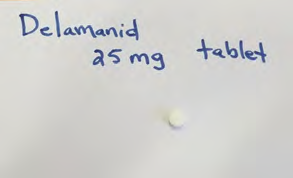 Delamanid
25 mg tablet